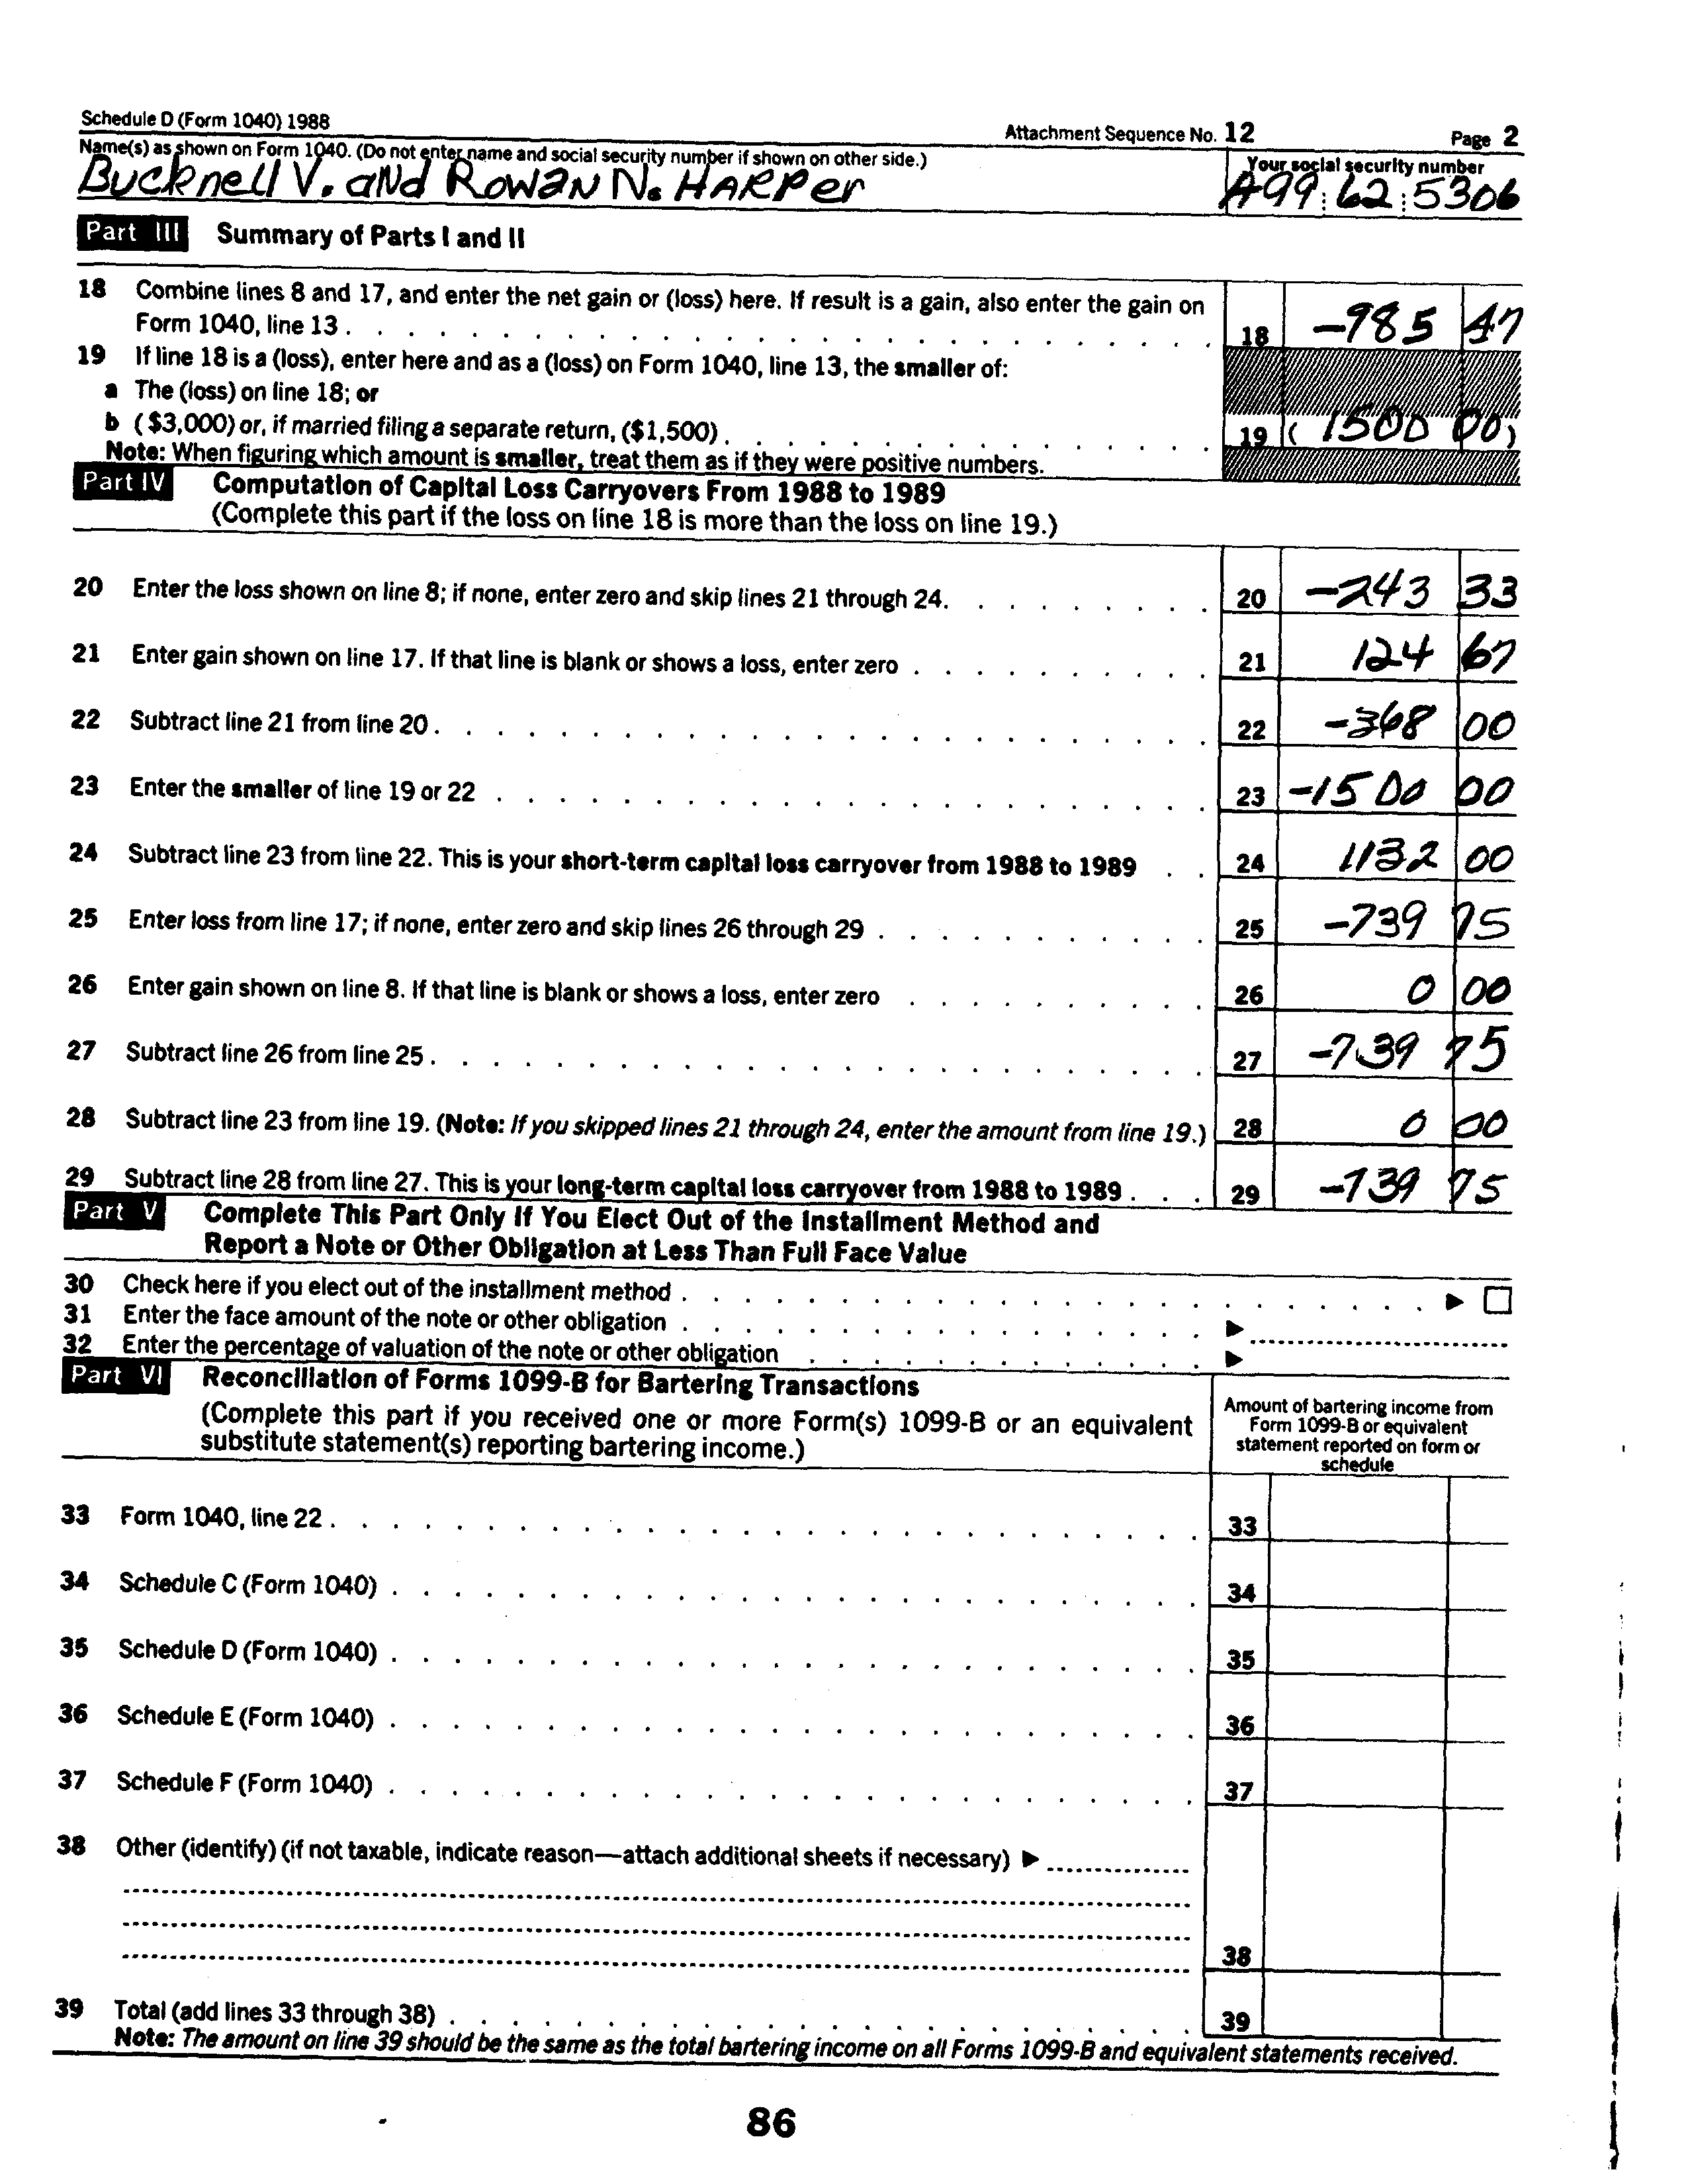 Schedule D (Form 1040) 1988
Attachment Sequence No. 12
Page 2
Name(s) as shown on Form 1040. (Do not enter name and social security number if shown on other side.)
Your social security number
Bucknell V. and Rowan N. Harper
A99:62:5306
Part III Summary of Parts I and II
18 Combine lines 8 and 17, and enter the net gain or (loss) here. If result is a gain, also enter the gain on
Form 1040, line 13 . . . . 18 -985 47
19 If line 18 is a (loss), enter here and as a (loss) on Form 1040, line 13, the smaller of:
a The (loss) on line 18; or
b ($3,000) or, if married filing a separate return, ($1,500) . . . . 19 ( 1500 00)
Note: When figuring which amount is smaller, treat them as if they were positive numbers.
Part IV Computation of Capital Loss Carryovers From 1988 to 1989
(Complete this part if the loss on line 18 is more than the loss on line 19.)
20 Enter the loss shown on line 8; if none, enter zero and skip lines 21 through 24. . . . . 20 -243 33
21 Enter gain shown on line 17. If that line is blank or shows a loss, enter zero . . . . 21 124 67
22 Subtract line 21 from line 20 . . . . 22 -368 00
23 Enter the smaller of line 19 or 22 . . . . 23 -1500 00
24 Subtract line 23 from line 22. This is your short-term capital loss carryover from 1988 to 1989 . . 24 1132 00
25 Enter loss from line 17; if none, enter zero and skip lines 26 through 29 . . . . 25 -739 75
26 Enter gain shown on line 8. If that line is blank or shows a loss, enter zero . . . . 26 0 00
27 Subtract line 26 from line 25 . . . . 27 -739 75
28 Subtract line 23 from line 19. (Note: If you skipped lines 21 through 24, enter the amount from line 19.) 28 0 00
29 Subtract line 28 from line 27. This is your long-term capital loss carryover from 1988 to 1989 . . . 29 -739 75
Part V Complete This Part Only If You Elect Out of the Installment Method and
Report a Note or Other Obligation at Less Than Full Face Value
30 Check here if you elect out of the installment method . . . . ▶ ☐
31 Enter the face amount of the note or other obligation . . . . ▶
32 Enter the percentage of valuation of the note or other obligation . . . . ▶
Part VI Reconciliation of Forms 1099-B for Bartering Transactions
(Complete this part if you received one or more Form(s) 1099-B or an equivalent
substitute statement(s) reporting bartering income.)
Amount of bartering income from
Form 1099-B or equivalent
statement reported on form or
schedule
33 Form 1040, line 22 . . . . 33
34 Schedule C (Form 1040) . . . . 34
35 Schedule D (Form 1040) . . . . 35
36 Schedule E (Form 1040) . . . . 36
37 Schedule F (Form 1040) . . . . 37
38 Other (identify) (if not taxable, indicate reason—attach additional sheets if necessary) ▶
38
39 Total (add lines 33 through 38) . . . . 39
Note: The amount on line 39 should be the same as the total bartering income on all Forms 1099-B and equivalent statements received.
86